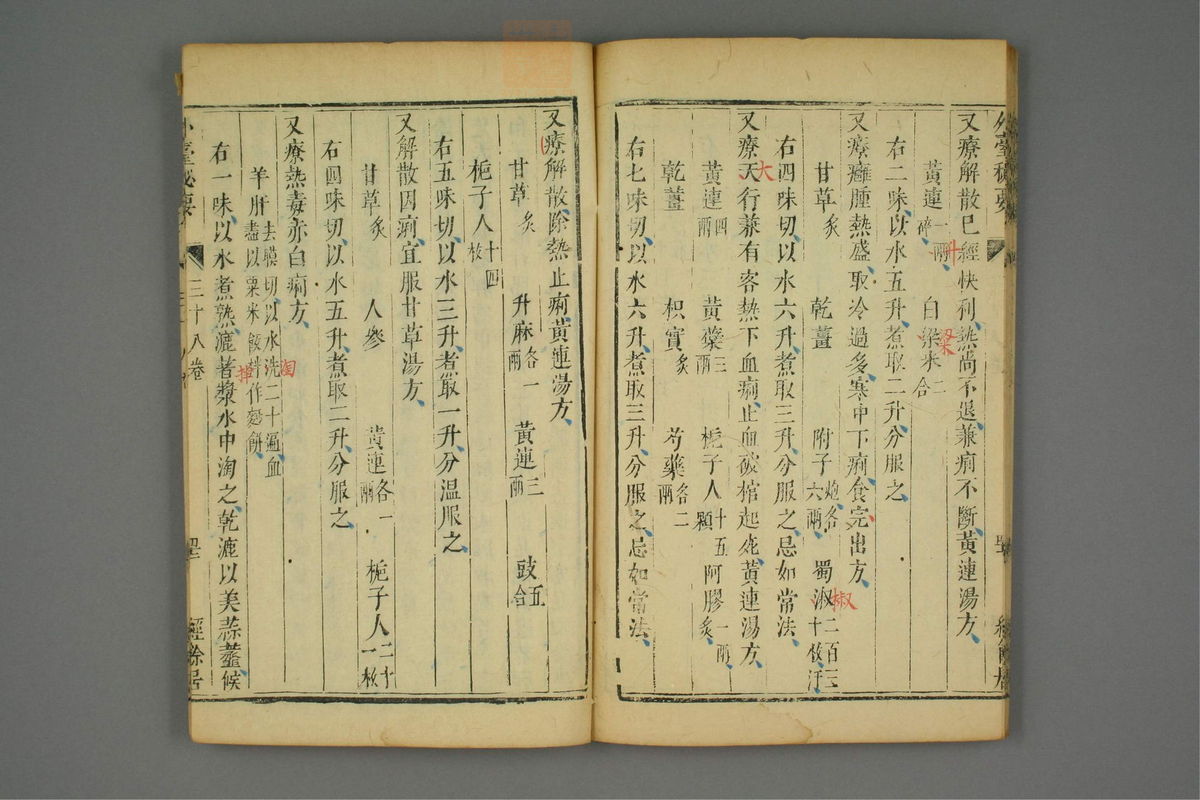 外臺秘要
又療解散已經快利熱尚不退兼痢不斷黃連湯方
黃連一兩碎 白粱米二合
升
梁
右二味以水五升煮取二升分服之
又療癰腫熱盛取冷過多寒中下痢食完出方
甘草炙 乾薑 附子炮各六兩 蜀淑二百三十枚汗
椒
右四味切以水六升煮取三升分服之忌如常法
又療天行兼有客熱下血痢止血破棺起死黃連湯方
大
黃連四兩 黃蘗三兩 梔子人十五顆 阿膠一兩炙
乾薑 枳實炙 芍藥各二兩
右七味切以水六升煮取三升分服之忌如常法
又療解散除熱止痢黃連湯方
甘草炙 升麻各一兩 黃連三兩 豉五合
梔子人十四枚
右五味切以水三升煮取一升分温服之
又解散因痢宜服甘草湯方
甘草炙 人參 黃連各一兩 梔子人二十一枚
右四味切以水五升煮取二升分服之
又療熱毒亦白痢方
羊肝去膜切以水洗二十遍血盡以粟米飲拌作麪餅
淘
右一味以水煮熟漉著漿水中淘之乾漉以美蒜虀候
外臺秘要 三十八卷 經餘居